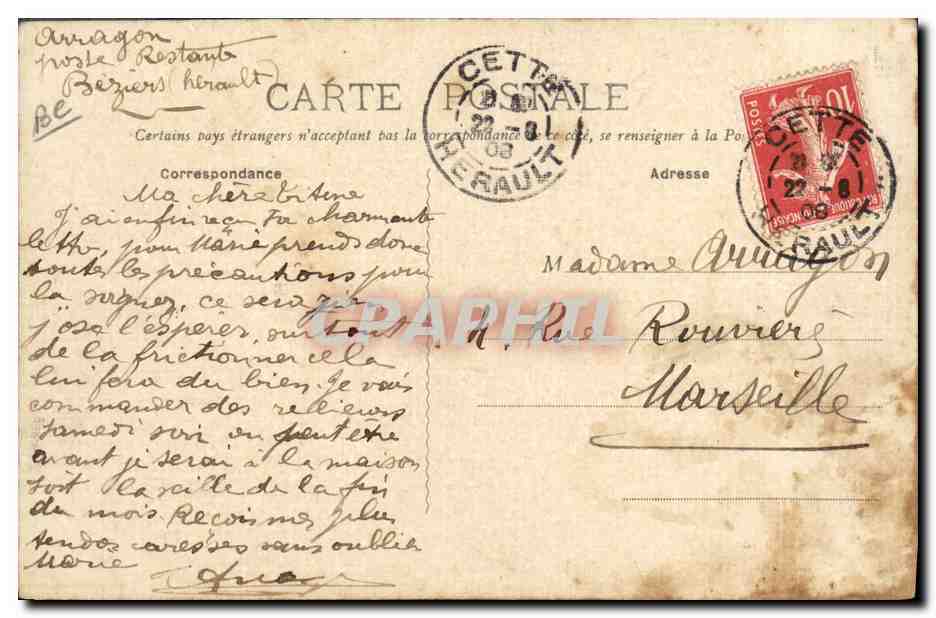 Arragon
poste Restante
Béziers (hérault)
BC
CARTE POSTALE
Certains pays étrangers n'acceptant pas la correspondance de ce côté, se renseigner à la Pos
CETTE
22 - 8
08
HERAULT
10
POSTES
REPUBLIQUE FRANÇAISE
CETTE
22 - 8
08
HERAULT
Correspondance
Adresse
Ma chère
J'ai enfin reçu Ta charmante
lettre, pour Marie prends donc
toutes les précautions pour
la soigner, ce sera
j'ose l'espérer, surtout
de la frictionner cela
lui fera du bien. Je vais
commander des
samedi soir ou peut être
avant je serai à la maison
soit la veille de la fin
du mois. Reçois mes plus
tendres caresses sans oublier
Marie
Madame Arragon
4, Rue Rouvière
Marseille
CPAPHIL